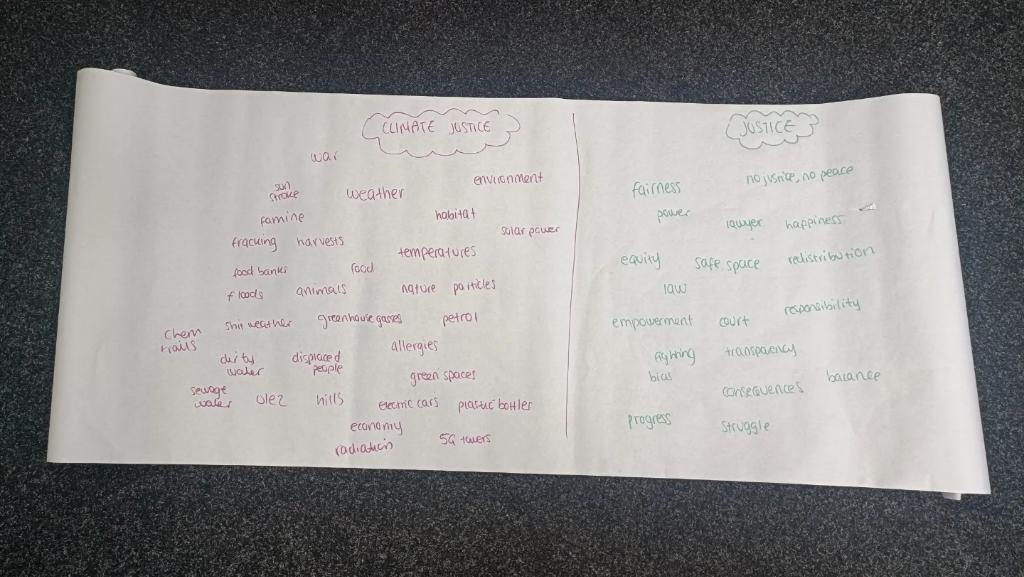 CLIMATE JUSTICE
war
environment
sun
stroke
weather
famine
habitat
solar power
fracking harvests
temperatures
food banks
food
floods
animals
nature particles
chem
trails
shit weather
greenhouse gasses
petrol
allergies
dirty
water
displaced
people
green spaces
sewage
water
ulez
hills
electric cars
plastic bottles
economy
radiation
5G towers
JUSTICE
no justice, no peace
fairness
power
lawyer
happiness
equity
safe space
redistribution
law
responsibility
empowerment
court
fighting
transparency
bias
balance
consequences
progress
struggle